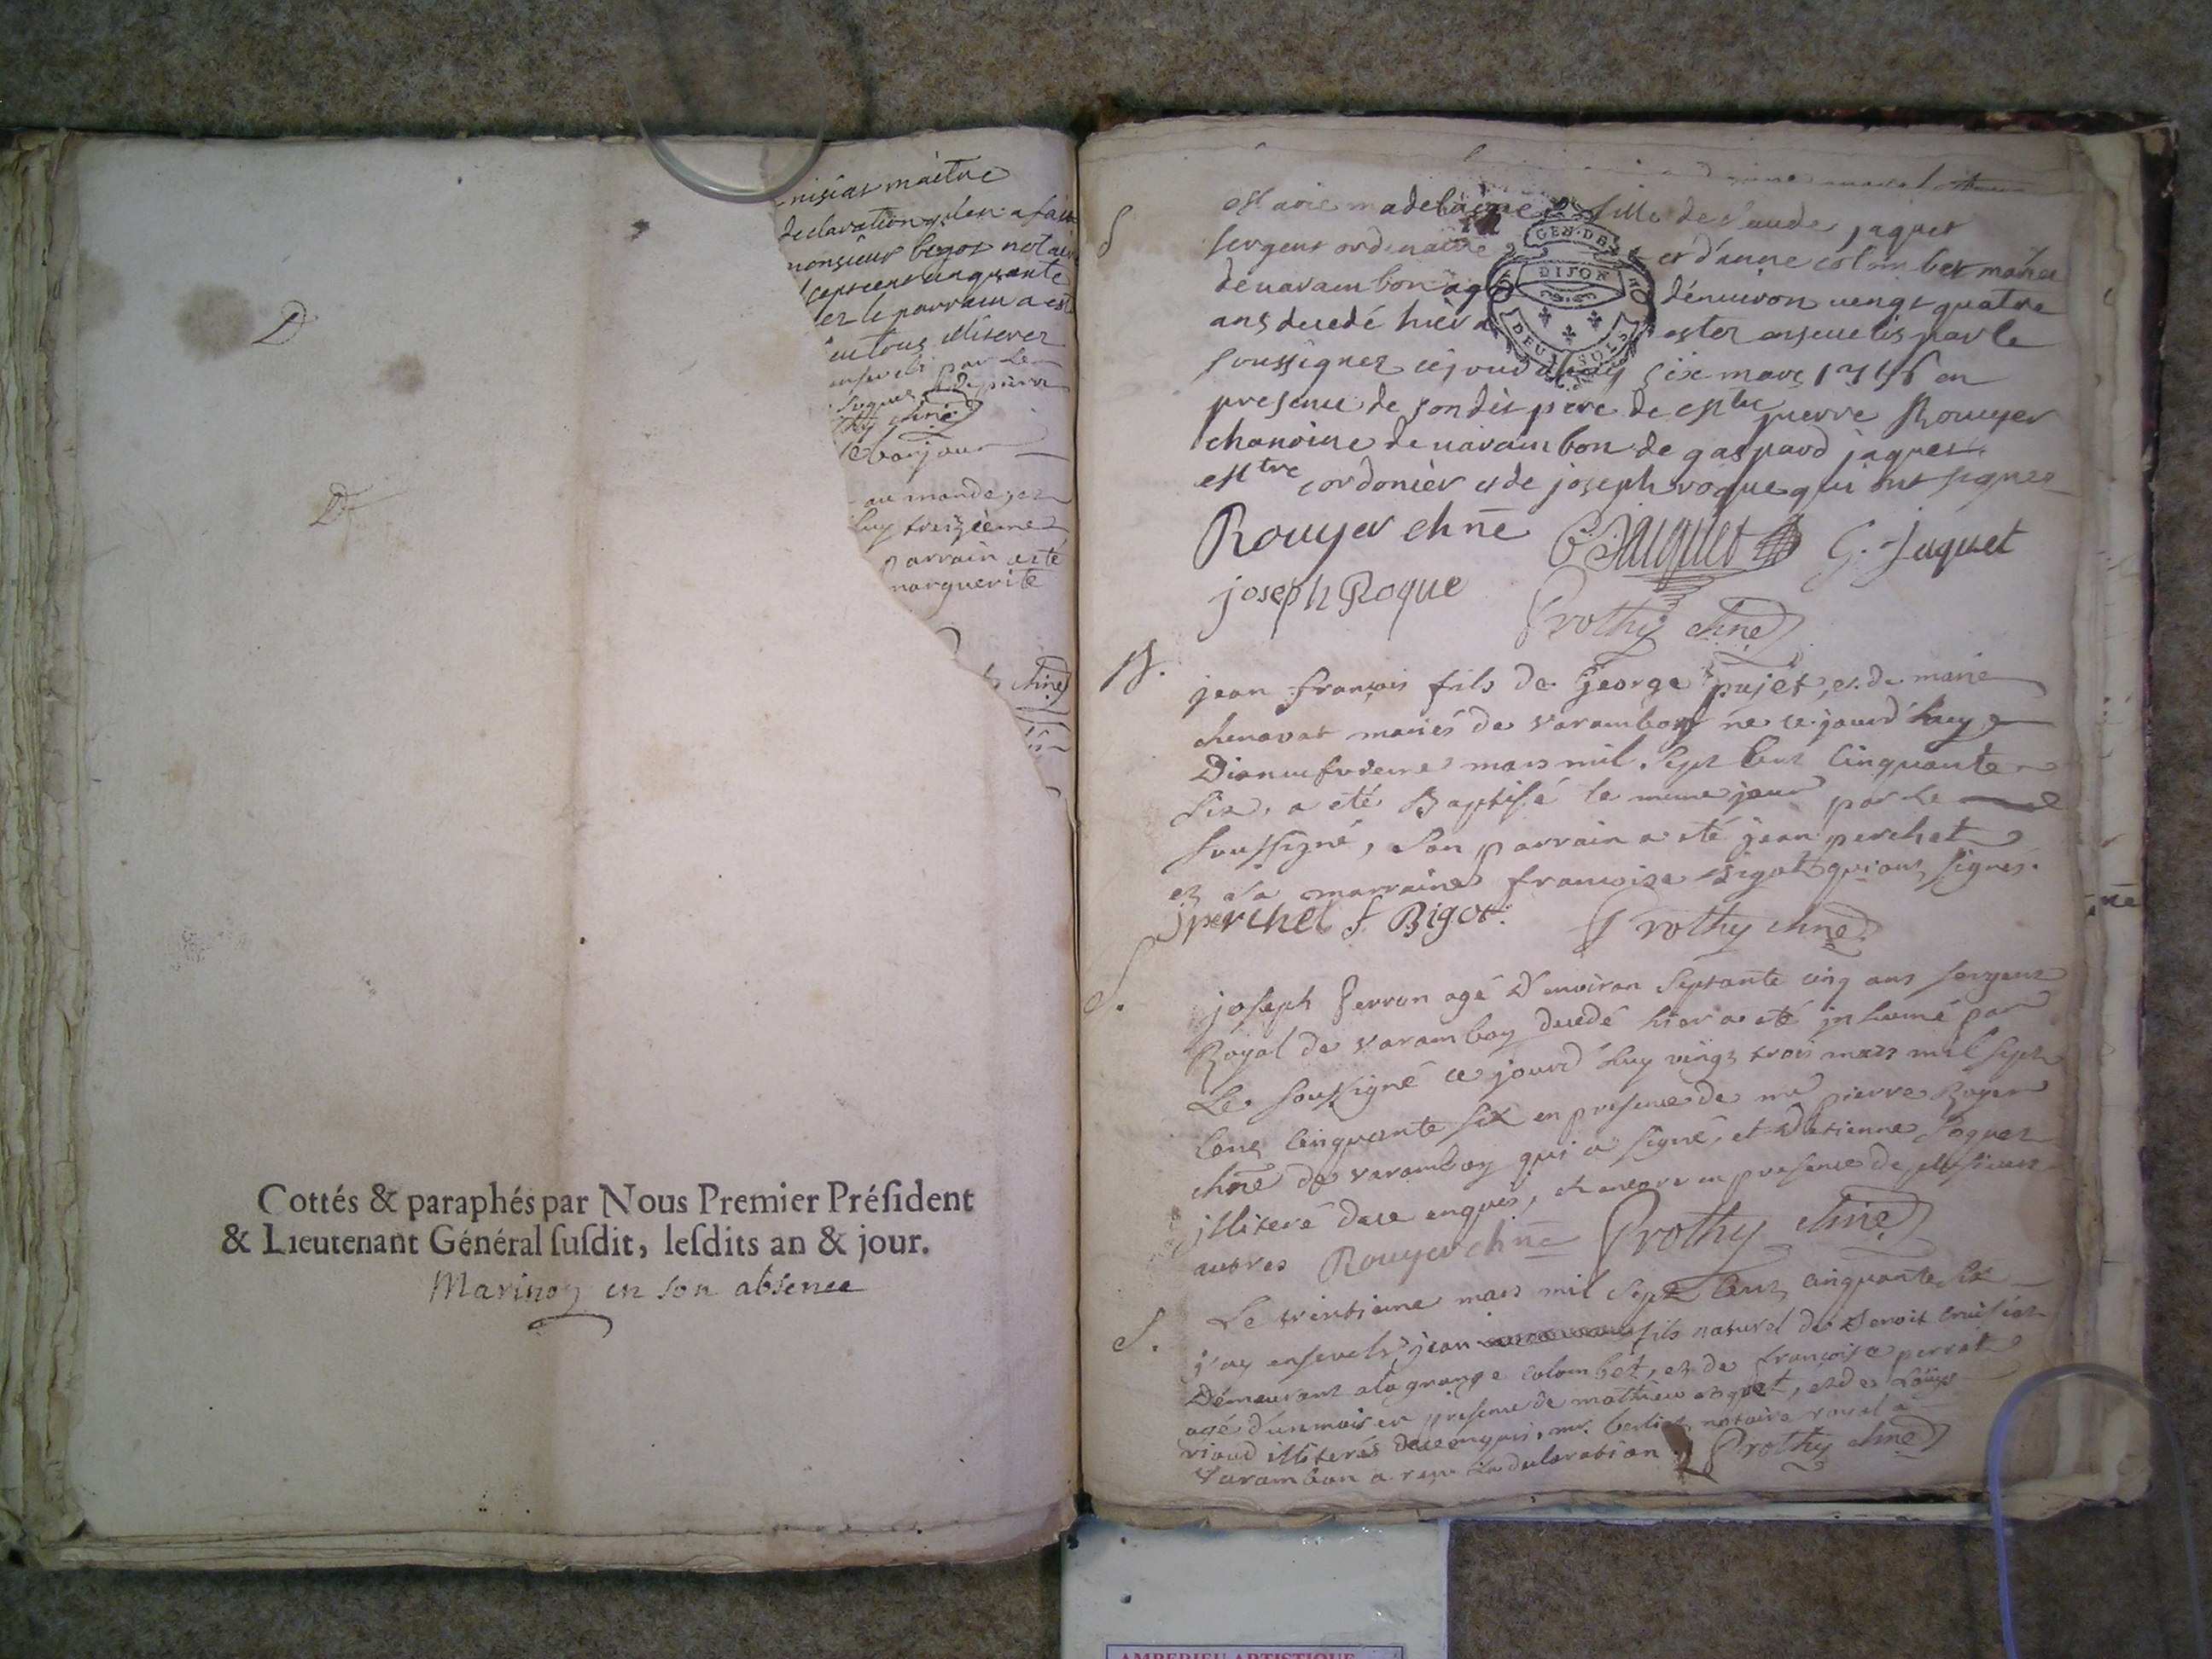 nisias maitre
declaration
monsieur bigot notaire
sept cent cinquante
et le parrain a esté
illiterez
ensevelis par le
chne
bonjour
au monde, et
huy treizieme
parrain a été
marguerite
chne
D
D
Cottés & paraphés par Nous Premier Préſident
& Lieutenant Général ſuſdit, leſdits an & jour.
en son absence
S
madelaine fille de Claude jaquet
sergent ordenaire et d'anne colombet mariés
de varambon agé d'environ vingt quatre
ans decedé hier a estez ensevelis par le
soussignez ce jourdhuy six mars 1756 en
presence de son dit père de pierre Rouyer
chanoine de varambon de gaspard jaquet
cordonier et de joseph roque qui ont signez
GEN. DE
DIJON
DEUX SOLS
Rouyer chne C Jaquet G. Jaquet
joseph Roque
Prothy chne
B.
jean françois fils de George pujet, et de marie
chenavat mariés de varambon né ce jourd'huy
Dixneufvieme mars mil sept Cent Cinquante
six, a été Baptisé le meme jour par le
soussigné, son parrain a été jean perchet
et sa marraine françoise Bigot qui ont signés.
jperchet f Bigot. Prothy chne
S.
joseph ferran agé D'environ septante cinq ans sergent
Royal de varambon decedé hier a été inhumé par
Le soussigné ce jourd'huy vingt trois mars mil sept
Cent Cinquante six en presence de mr pierre Royer
chne de varambon qui a signé, et D'etienne Joquet
illiteré de ce enquis, et encore en presence de plusieurs
autres Rouyer chne Prothy chne
S.
Le trentieme mars mil sept Cent Cinquante six
j'ay enseveli jean fils naturel de Benoit
Demeurant a la grange colombet, et de françoise perrat
agé d'un mois en presence de mathieu, et de Louis
riaud illiterés de ce enquis, mr. notaire royal à
Varambon a reçu La declaration. Prothy chne
AMBERIEU ARTISTIQUE